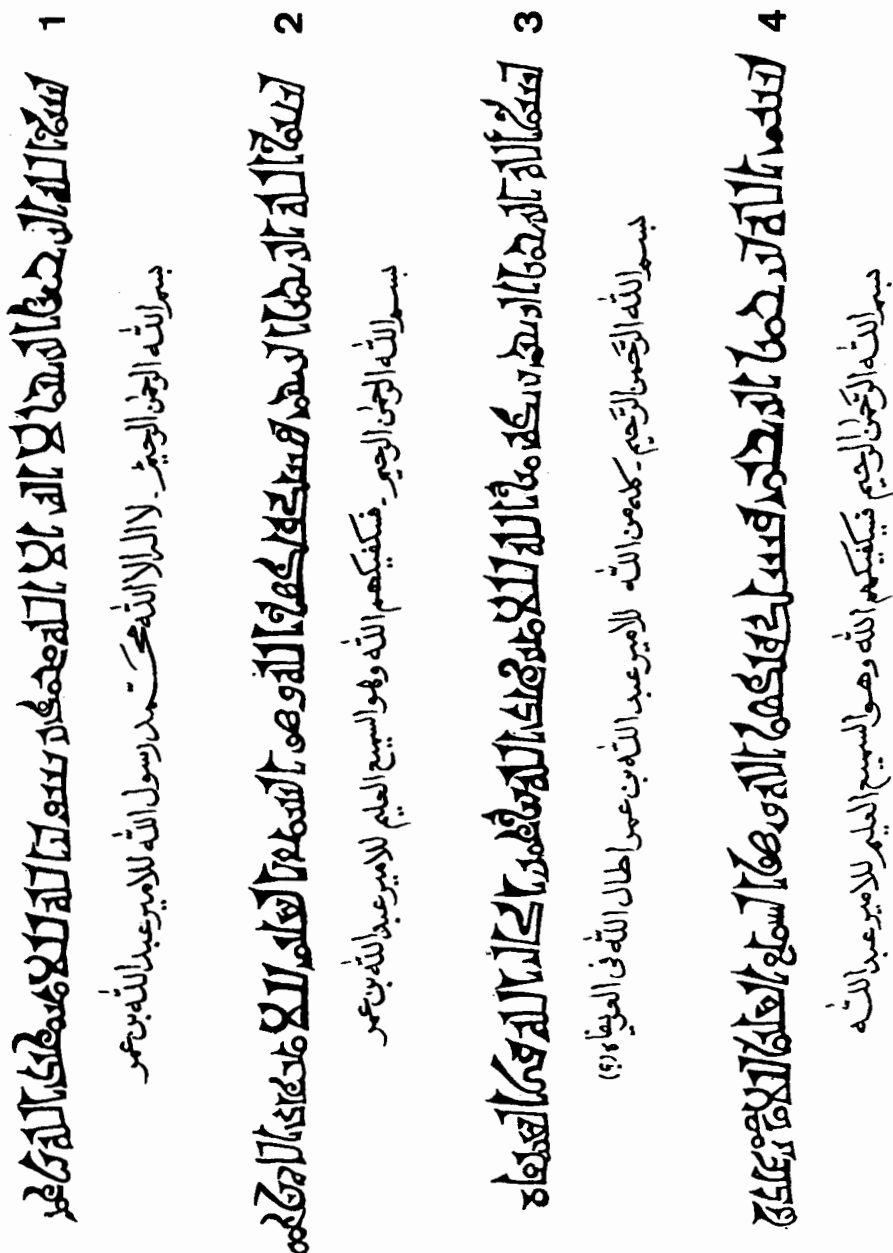 1
بسم الله الرحمن الرحيم لا اله الا الله محمد رسول الله للامير عبد الله بن عمر
بسم الله الرحمن الرحيم - لا اله الا الله محمد رسول الله للامير عبد الله بن عمر
2
بسم الله الرحمن الرحيم فسيكفيكهم الله وهو السميع العليم للامير عبد الله بن عمر
بسم الله الرحمن الرحيم - فسيكفيكهم الله وهو السميع العليم للامير عبد الله بن عمر
3
بسم الله الرحمن الرحيم من الله للامير عبد الله بن عمر اطال الله فى
بسم الله الرحمن الرحيم - كله من الله للامير عبد الله بن عمر اطال الله فى (؟)
4
بسم الله الرحمن الرحيم فسيكفيكهم الله وهو السميع العليم للامير عبد الله
بسم الله الرحمن الرحيم فسيكفيكهم الله وهو السميع العليم للامير عبد الله